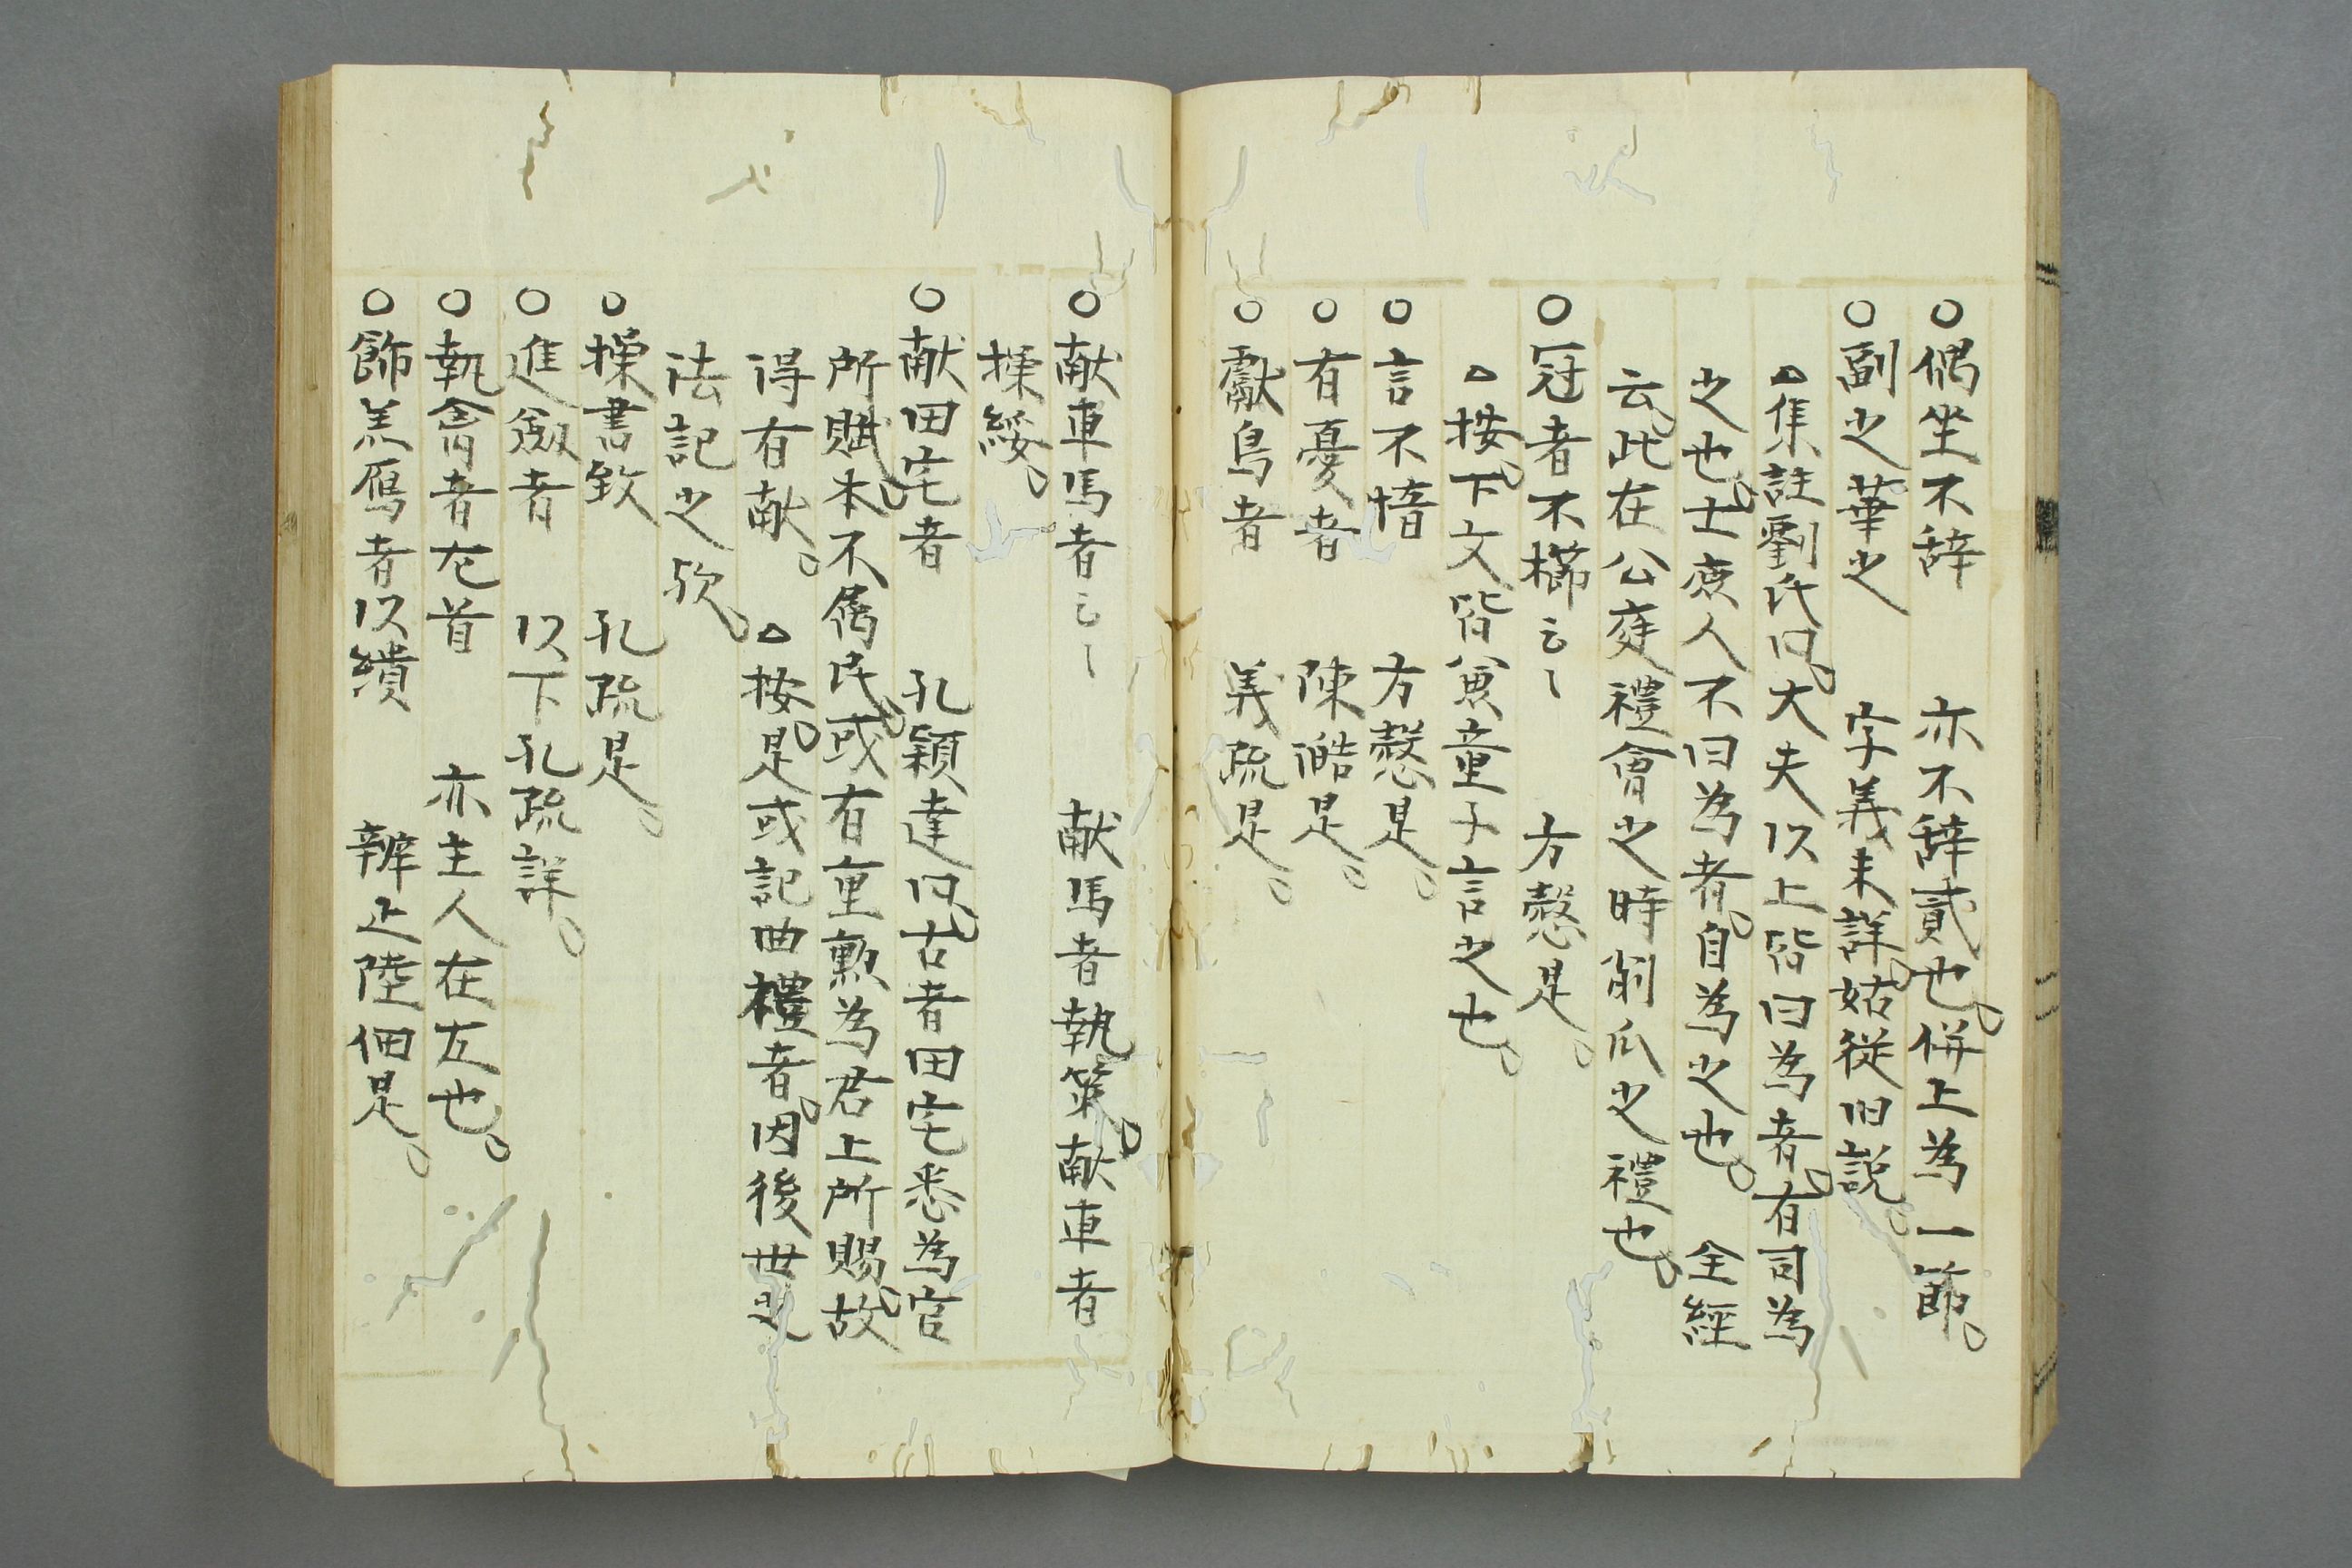 ○偶坐不辞　亦不辞貳也。併上為一節。
○副之華之　字義未詳。姑從旧説。
△集註劉氏曰。大夫以上皆曰為者。有司為
之也。士庶人不曰為者。自為之也。　全經
云。此在公庭禮會之時削瓜之禮也。
○冠者不櫛云〻　方愨是。
△按。下文皆兼童子言之也。
○言不惰　方愨是。
○有憂者　陳澔是。
○獻鳥者　義疏是。
○献車馬者云〻　献馬者執策。献車者
操綏。
○献田宅者　孔穎達曰。古者田宅悉為官
所賦。本不属民。或有重勲為君上所賜。故
得有献。　△按。是或記曲禮者。因後世之
法記之欤。
○操書致　孔疏是。
○進劔者　以下孔疏詳。
○執禽者左首　亦主人在左也。
○飾羔鴈者以繢　辨正陸佃是。